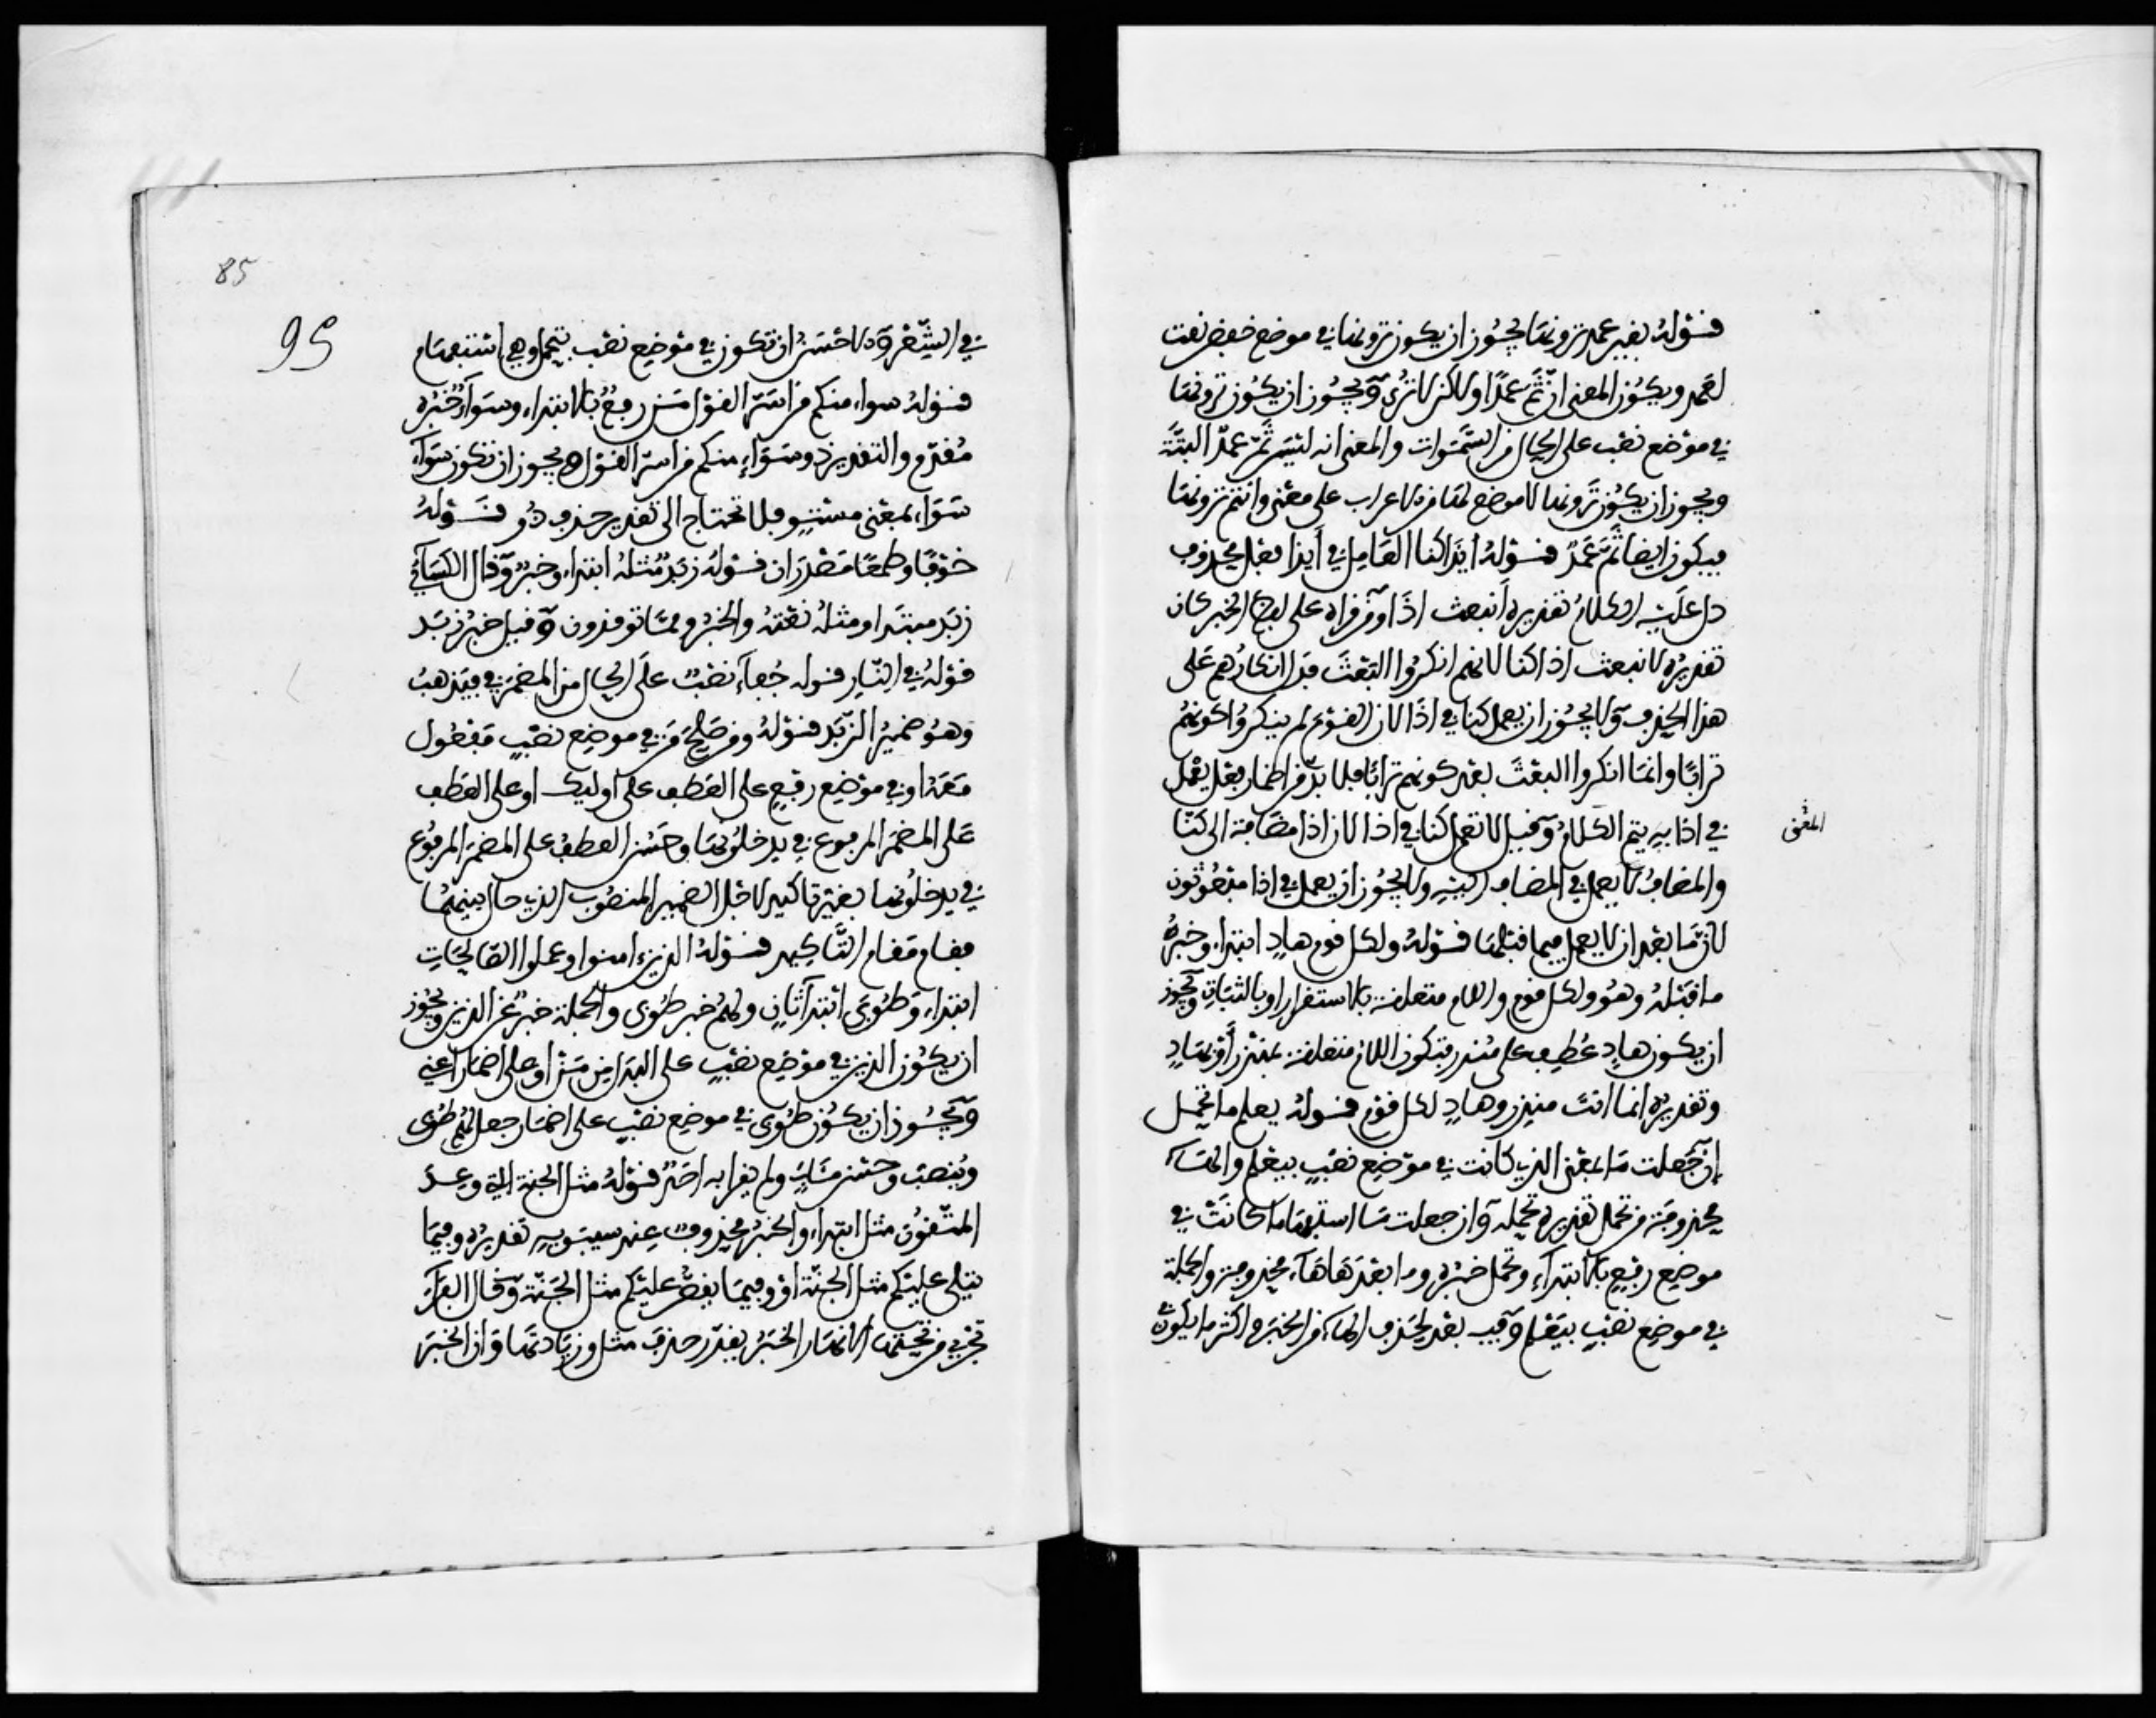 قوله بغير عمد ترونها يجوز ان يكون ترونها في موضع خفض نعت
لعمد ويكون المعنى ان ثم عمدا ولاكن لا ترى ويجوز ان يكون ترونها
في موضع نصب على الحال من السموات والمعنى انه ليس ثم عمد البتة
ويجوز ان يكون ترونها لا موضع لها من الاعراب على معنى وانتم ترونها
فيكون ايضا ثم عمد قوله ايذا كنا العامل في أيذا فعل محذوف
دل عليه الكلام تقديره انبعث اذا ومن قراه على لفظ الخبر كان
تقديره لا نبعث اذا كنا لانهم انكروا البعث فدل انكارهم على
هذا الحذف ولا يجوز ان يعمل كنا في اذا لان القوم لم ينكروا كونهم
ترابا وانما انكروا البعث بعد كونهم ترابا فلا بد من اضمار فعل يعمل
في اذا به يتم الكلام وقيل لا تعمل كنا في اذا لان اذا مضافة الى كنا
المعنى
والمضاف لا يعمل في المضاف اليه ولا يجوز ان يعمل في اذا مبعوثون
لان ما بعد ان لا يعمل فيما قبلها قوله ولكل قوم هاد ابتداء وخبره
ما قبله وهو ولكل قوم واللام متعلقة بالاستقرار او بالثبات ويجوز
ان يكون هاد عطف على منذر فتكون اللام متعلقة بمنذر أو بهاد
وتقديره انما انت منذر وهاد لكل قوم قوله يعلم ما تحمل
إن جعلت ما بمعنى الذي كانت في موضع نصب بيعلم والهاء
محذوفة من تحمل تقديره تحمله وان جعلت ما استفهاما كانت في
موضع رفع بالابتداء وتحمل خبره وما بعدها هاء محذوفة والجملة
في موضع نصب بيعلم وفيه بعد لحذف الهاء من الخبر واكثر ما يكون
85
95
في الشعر والاحسن ان تكون في موضع نصب بتحمل وهي استفهام
قوله سواء منكم من اسر القول من رفع بالابتداء وسواء خبره
مقدم والتقدير ذو سواء منكم من اسر القول ويجوز ان تكون سواء
سواء بمعنى مستو فلا تحتاج الى تقدير حذف ذو قوله
خوفا وطمعا مصدران قوله زبد مثله ابتداء وخبر وقال الكسائي
زبد مبتدا ومثله نعته والخبر ومما توقدون وقيل خبر زبد
قوله في النار قوله جفاء نصب على الحال من المضمر في فيذهب
وهو ضمير الزبد قوله ومن صلح من في موضع نصب مفعول
معه او في موضع رفع على العطف على اوليك او على العطف
على المضمر المرفوع في يدخلونها وحسن العطف على المضمر المرفوع
في يدخلونها بغير تاكيد لاجل الضمير المنصوب الذي حال بينهما
فقام مقام التاكيد قوله الذين ءامنوا وعملوا الصالحات
ابتداء وطوبى ابتدا ثان ولهم خبر طوبى والجملة خبر عن الذين ويجوز
ان يكون الذين في موضع نصب على البدل من من او على اضمار اعني
ويجوز ان يكون طوبى في موضع نصب على اضمار جعل لهم طوبى
وينصب وحسن مئاب ولم يقرا به احد قوله مثل الجنة التي وعد
المتقون مثل ابتداء والخبر محذوف عند سيبويه تقديره وفيما
يتلى عليكم مثل الجنة او وفيما يقص عليكم مثل الجنة وقال الفراء
تجري من تحتها الانهار الخبر يقدر حذف مثل وزيادتها وان الخبر